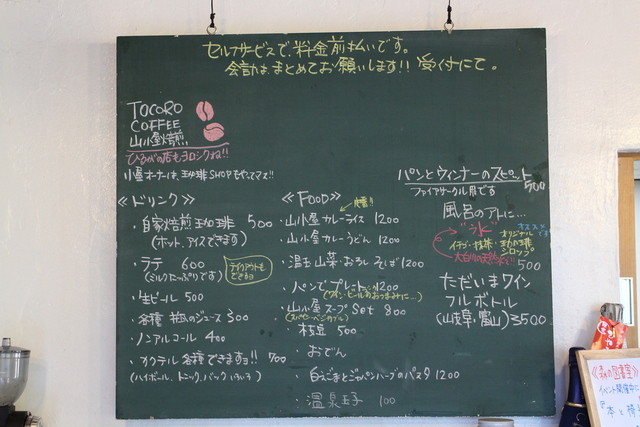 セルフサービスで、料金前払いです。
会計は、まとめてお願いします!! 受付にて。
TOCORO
COFFEE
山小屋焙煎
ひるがの店もヨロシクね!!
小屋オーナーは、珈琲SHOPもやってマス!!
≪ドリンク≫
・自家焙煎珈琲 500
(ホット、アイスできます)
・ラテ 600
(ミルクたっぷりです)
テイクアウトもできるヨ
・生ビール 500
・各種 ジュース 300
・ノンアルコール 400
・カクテル各種できますヨ!! 700
(ハイボール、トニック、バック いろいろ)
≪FOOD≫
・山小屋カレーライス 1200
・山小屋カレーうどん 1200
・温玉山菜・おろしそば 1200
・パンでプレート 1200
(ワイン・ビールのおつまみに...)
・山小屋スープSet 800
・枝豆 500
・おでん
・白ごまとジャパンハーブのパスタ 1200
・温泉玉子 100
パンとウィンナーのスピット
ファイヤサークル用です 500
風呂のアトに...
"氷"
イチゴ・抹茶・
オリジナル
シロップ
500
ただいまワイン
フルボトル
(山岐阜・富山) 3500
イベント開催中